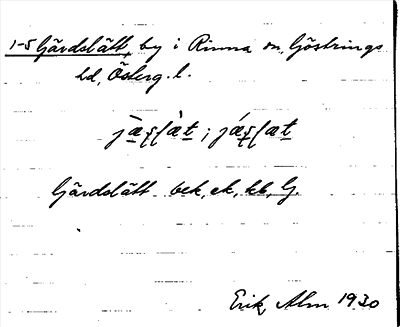 1-5 Gärdslätt, by i Rinna sn, Göstrings
hd, Österg. l.
Gärdslätt bek, ek, kb, G.
Erik Alm 1930